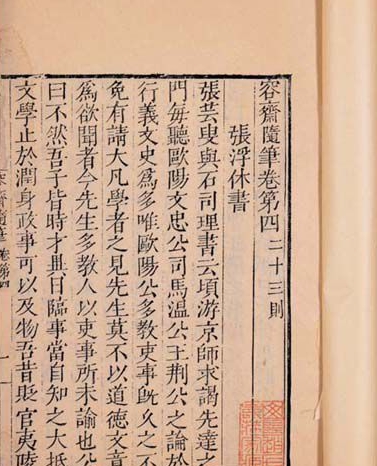 容齋隨筆卷第四 二十三則
張浮休書
張芸叟與石司理書云頃游京師求謁先達之
門每聽歐陽文忠公司馬溫公王荆公之論於
行義文史爲多唯歐陽公多教吏事旣久之不
免有請大凡學者之見先生莫不以道德文章
爲欲聞者今先生多教人以吏事所未諭也公
曰不然吾子皆時才異日臨事當自知之大抵
文學止於潤身政事可以及物吾昔貶官夷陵